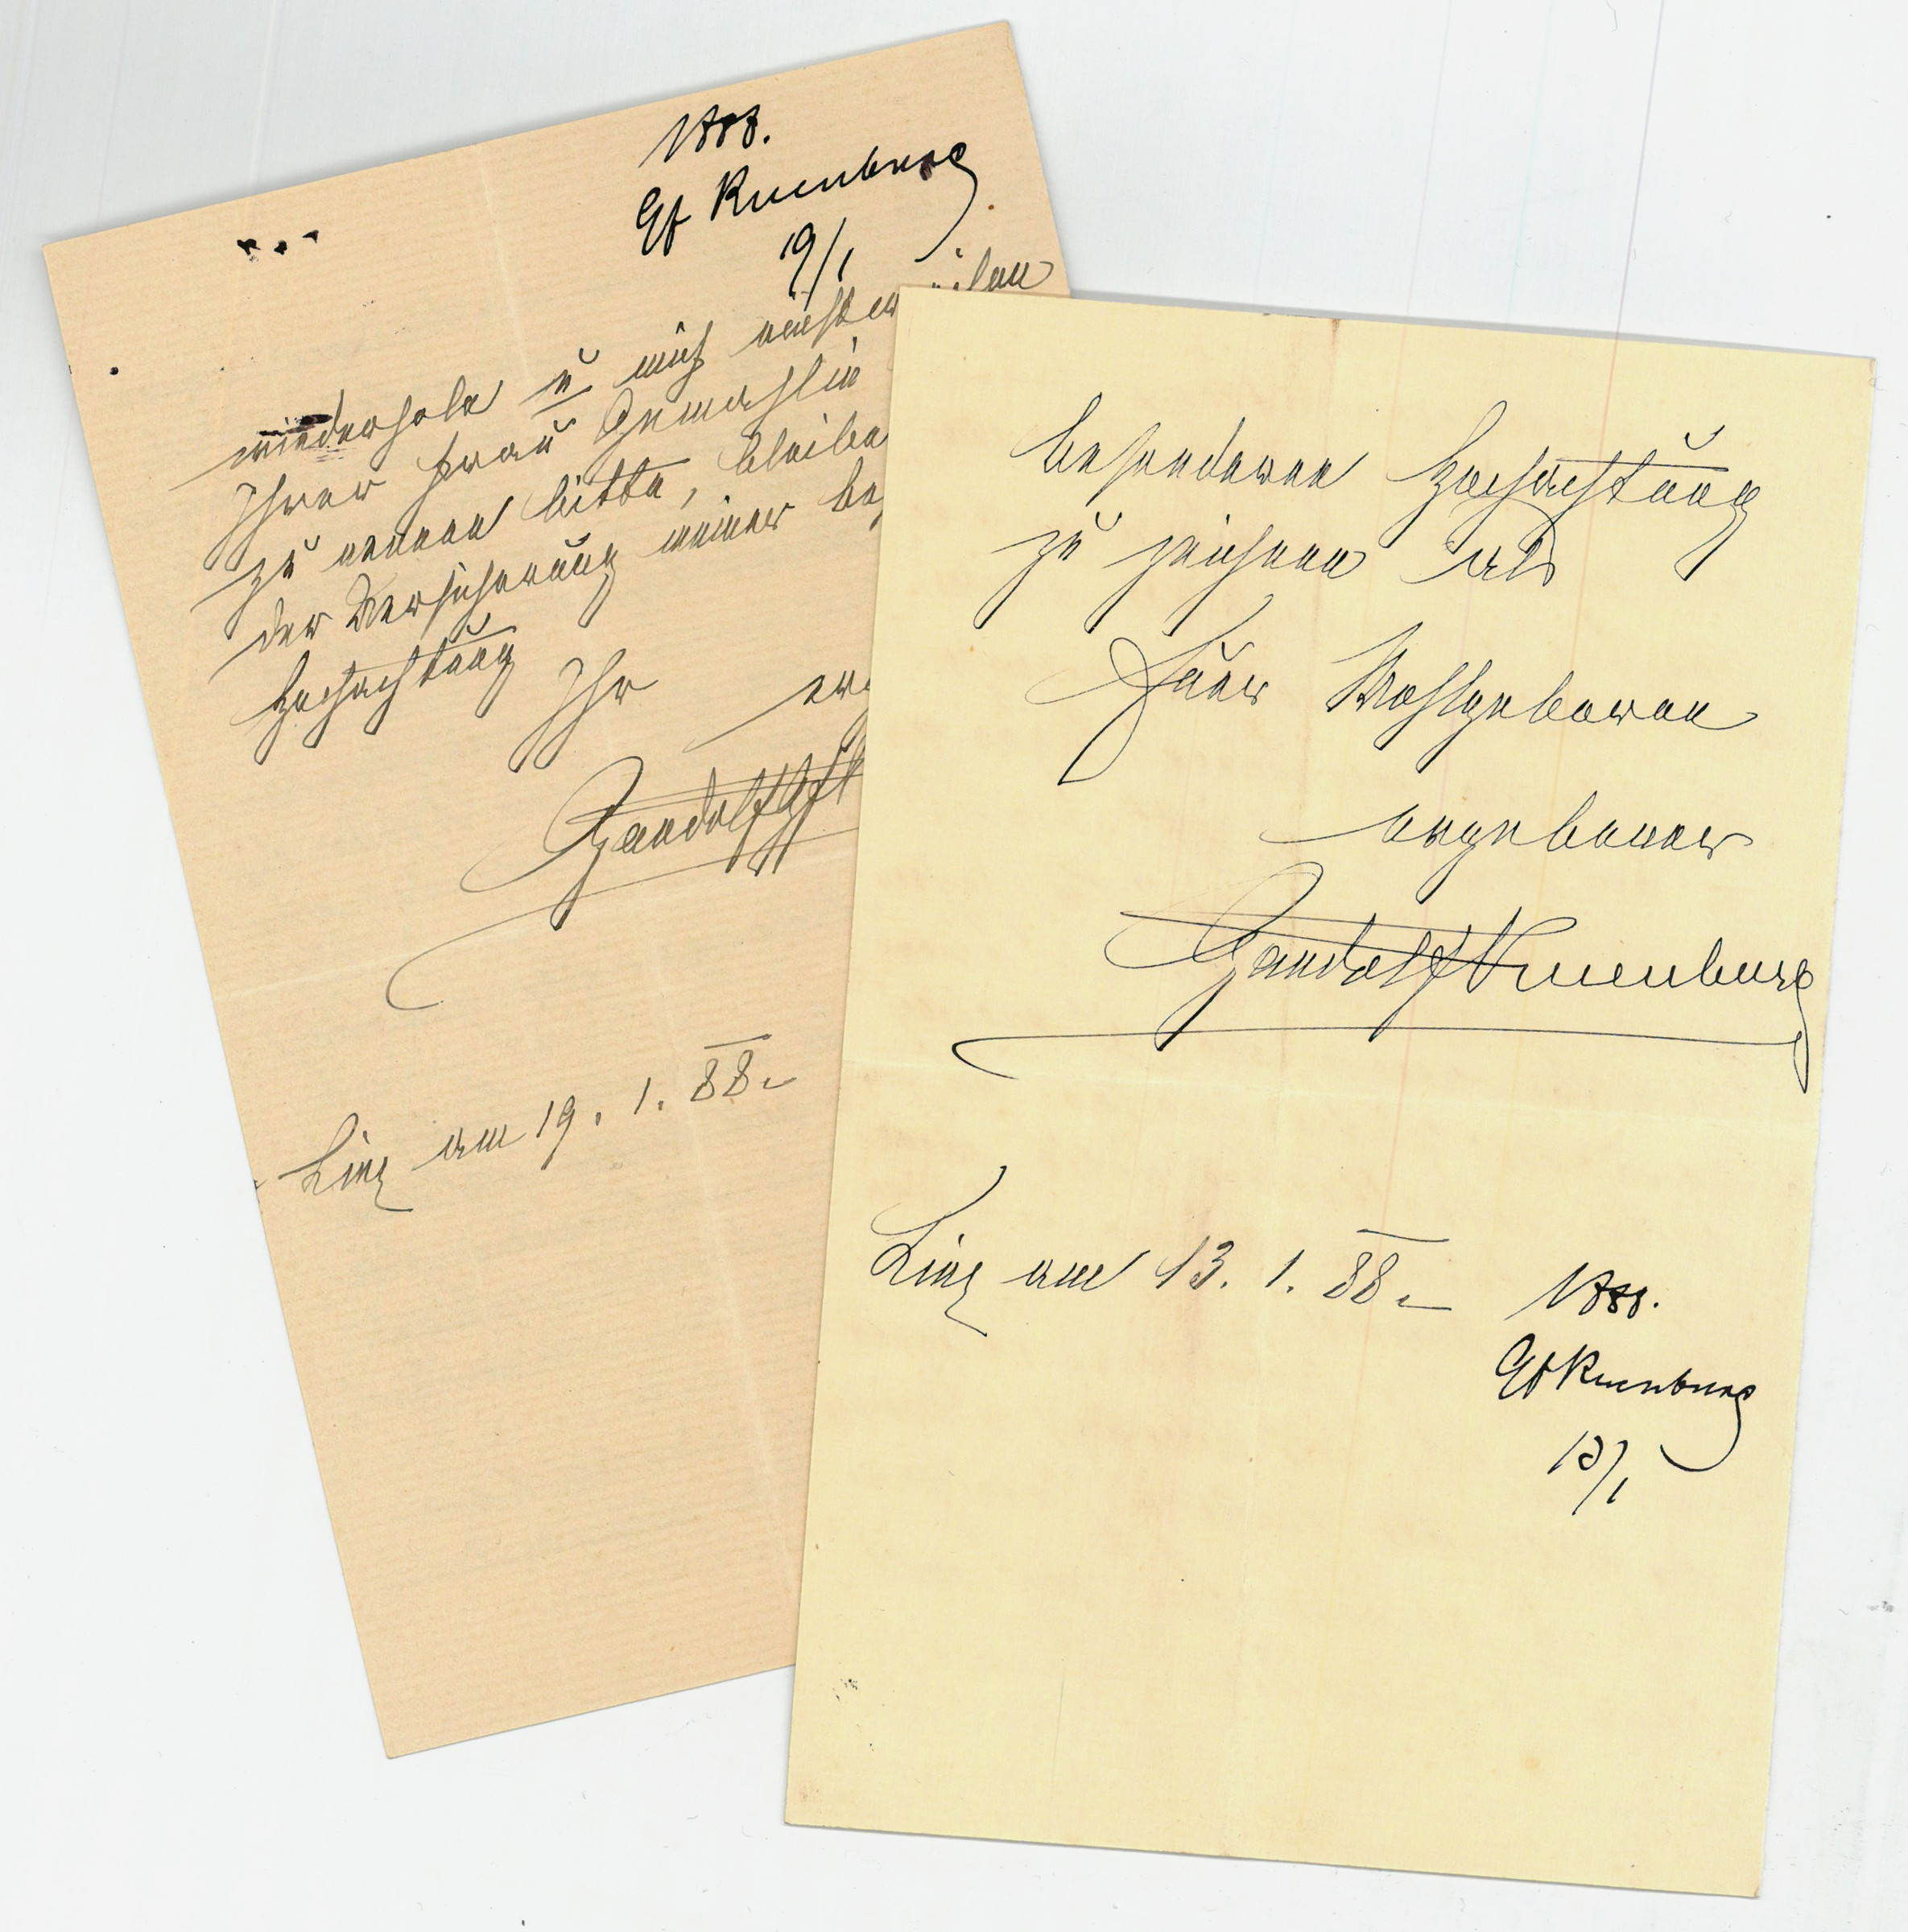 1888.
Gf Kuenburg
19/1
wiederhole u mich
Ihrer Frau Gemahlin
zu nennen bitte, bleibe
der Versicherung meiner be
Hochachtung
Ihr er
Gandolf Gf K
Linz am 19. 1. 88.
besonderen Hochachtung
zu zeichnen als
Euer Wohlgeboren
ergebener
Gandolf Kuenburg
Linz am 13. 1. 88.
1888.
Gf Kuenburg
13/1